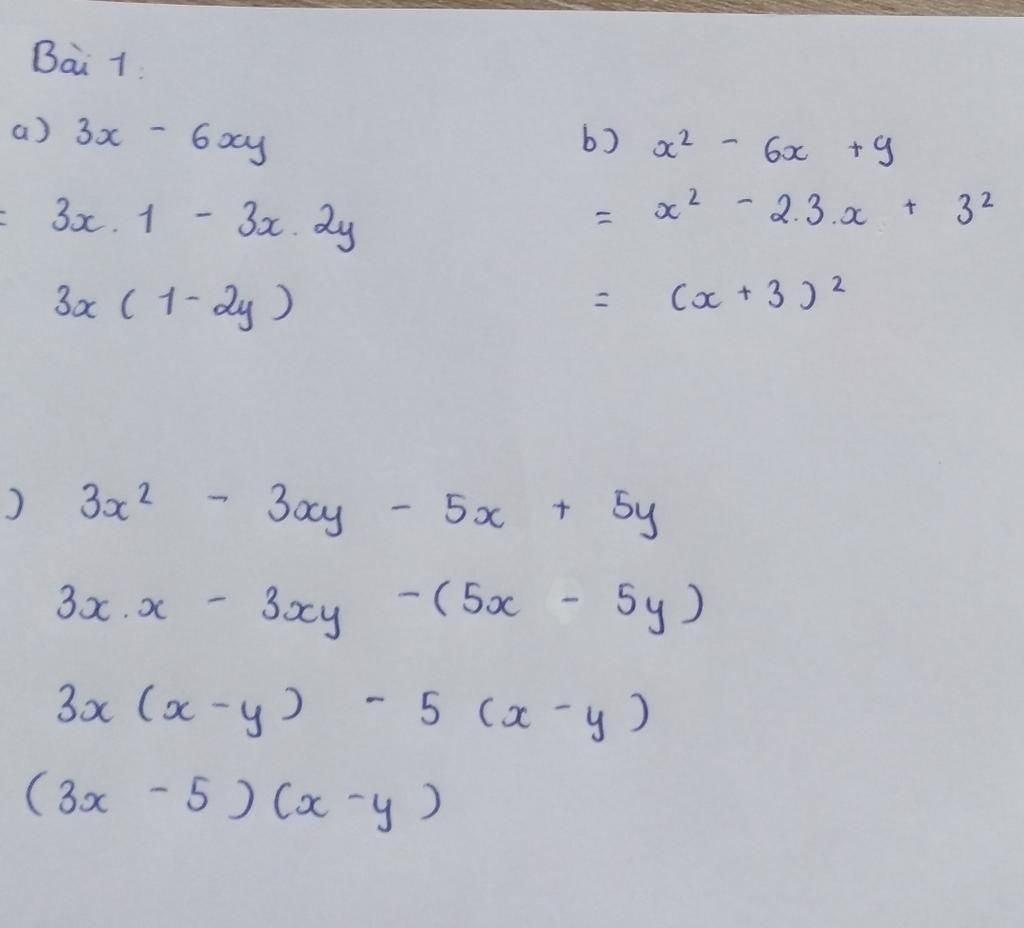 Bài 1:
a) 3x - 6xy
= 3x . 1 - 3x . 2y
3x ( 1 - 2y )
b) x² - 6x + 9
= x² - 2.3.x + 3²
= (x + 3)²
) 3x² - 3xy - 5x + 5y
3x . x - 3xy - (5x - 5y)
3x (x - y) - 5 (x - y)
(3x - 5)(x - y)